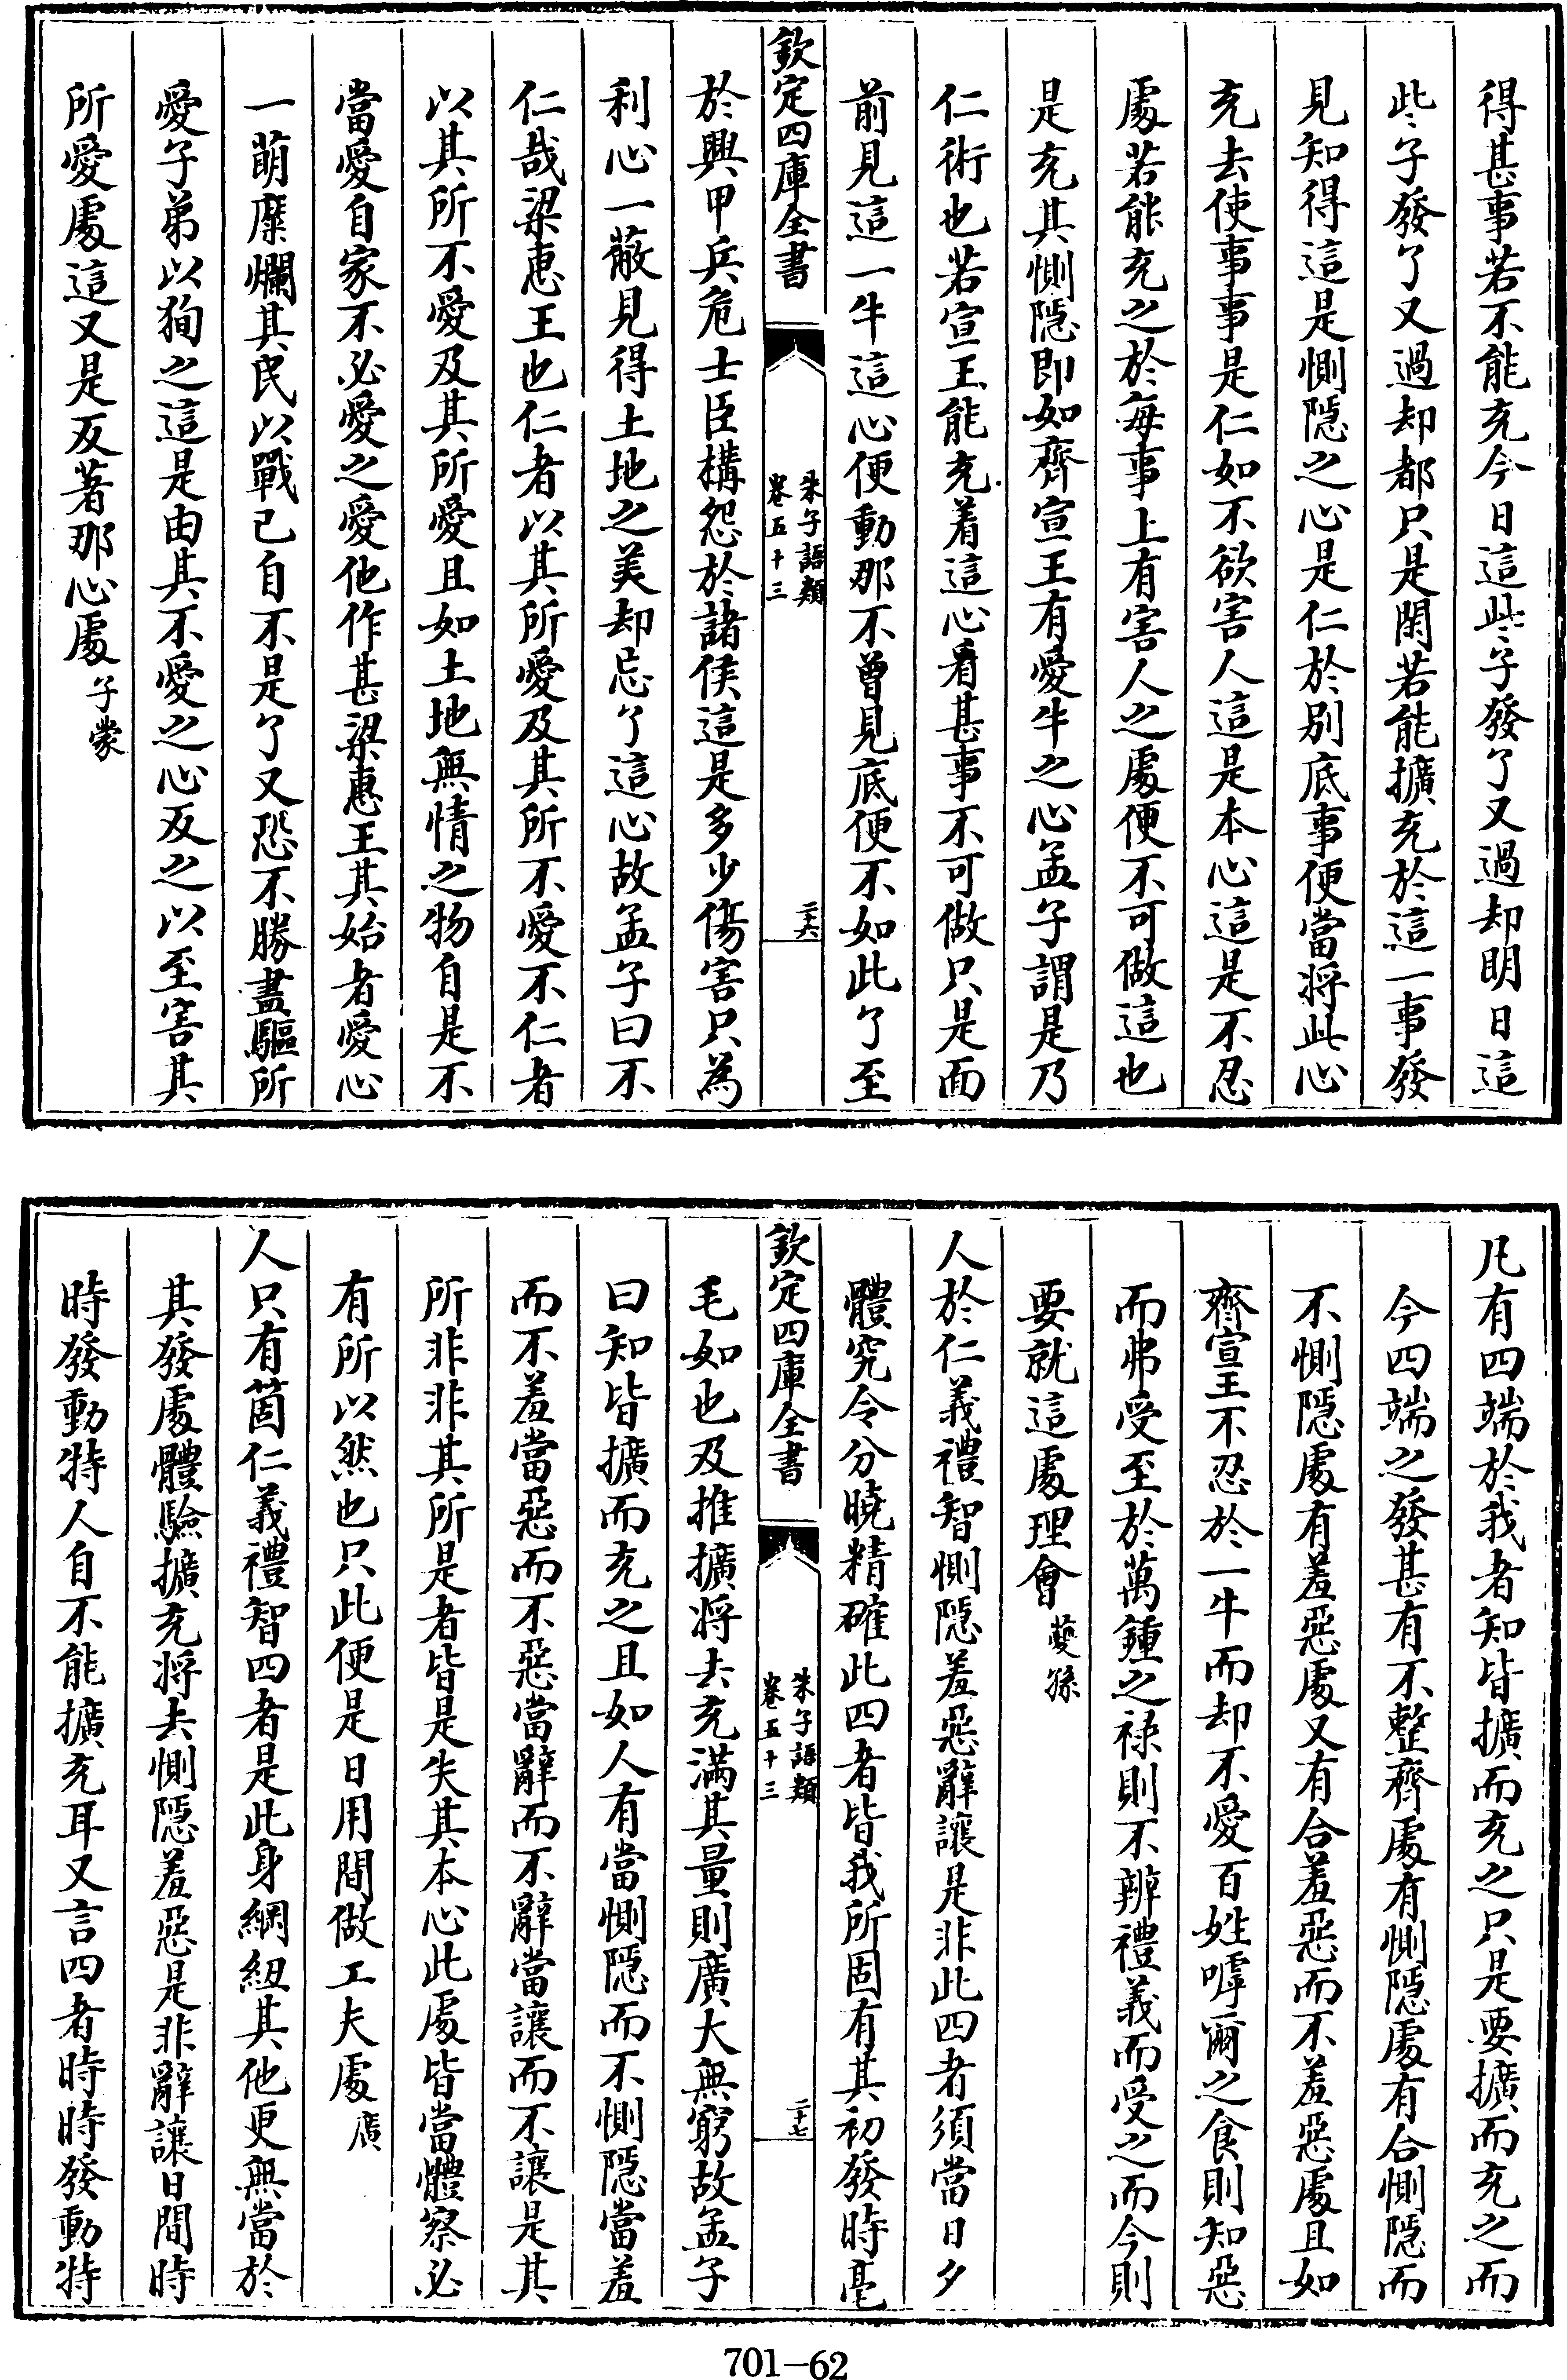 得甚事若不能充今日這些子發了又過却明日這
些子發了又過却都只是閑若能擴充於這一事發
見知得這是惻隠之心是仁於别底事便當將此心
充去使事事是仁如不欲害人這是本心這是不忍
處若能充之於每事上有害人之處便不可做這也
是充其惻隠即如齊宣王有愛牛之心孟子謂是乃
仁術也若宣王能充着這心看甚事不可做只是面
前見這一牛這心便動那不曽見底便不如此了至
欽定四庫全書
朱子語類
卷五十三
二十六
於興甲兵危士臣構怨於諸侯這是多少傷害只為
利心一蔽見得土地之美却忘了這心故孟子曰不
仁哉梁惠王也仁者以其所愛及其所不愛不仁者
以其所不愛及其所愛且如土地無情之物自是不
當愛自家不必愛之愛他作甚梁惠王其始者愛心
一萌糜爛其民以戰已自不是了又恐不勝盡驅所
愛子弟以徇之這是由其不愛之心反之以至害其
所愛處這又是反著那心處子蒙
凡有四端於我者知皆擴而充之只是要擴而充之而
今四端之發甚有不整齊處有惻隠處有合惻隠而
不惻隠處有羞惡處又有合羞惡而不羞惡處且如
齊宣王不忍於一牛而却不愛百姓嘑爾之食則知惡
而弗受至於萬鍾之禄則不辨禮義而受之而今則
要就這處理會夔孫
人於仁義禮智惻隠羞惡辭讓是非此四者須當日夕
體究令分曉精確此四者皆我所固有其初發時毫
欽定四庫全書
朱子語類
卷五十三
二十七
毛如也及推擴將去充滿其量則廣大無窮故孟子
曰知皆擴而充之且如人有當惻隠而不惻隠當羞
而不羞當惡而不惡當辭而不辭當讓而不讓是其
所非非其所是者皆是失其本心此處皆當體察必
有所以然也只此便是日用間做工夫處廣
人只有箇仁義禮智四者是此身綱紐其他更無當於
其發處體驗擴充將去惻隠羞惡是非辭讓日間時
時發動特人自不能擴充耳又言四者時時發動特
701-62